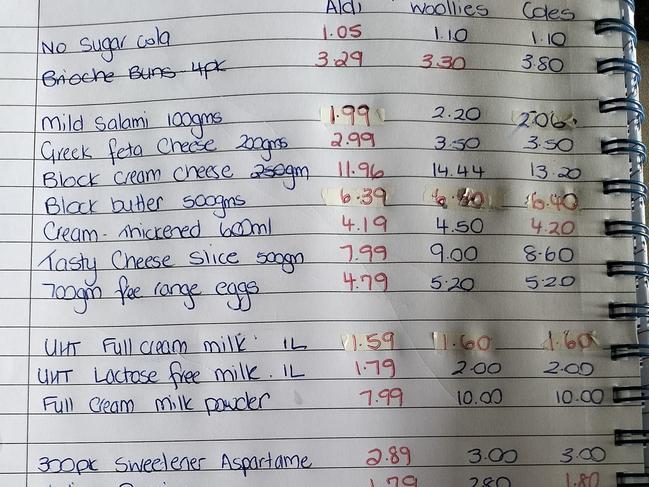 Aldi Woollies Coles
No Sugar Cola 1.05 1.10 1.10
Brioche Buns 4pk 3.29 3.30 3.80
Mild Salami 100gms 1.99 2.20 2.06
Greek feta Cheese 200gms 2.99 3.50 3.50
Block cream cheese 250gm 11.96 14.44 13.20
Block butter 500gms 6.39 6.40
Cream - thickened 600ml 4.19 4.50 4.20
Tasty Cheese Slice 500gm 7.99 9.00 8.60
700gm free range eggs 4.79 5.20 5.20
UHT Full cream milk 1L 1.59 1.60 1.60
UHT Lactose free milk . 1L 1.79 2.00 2.00
Full Cream milk powder 7.99 10.00 10.00
300pk Sweetener Aspartame 2.89 3.00 3.00
1.79 2.80 1.80